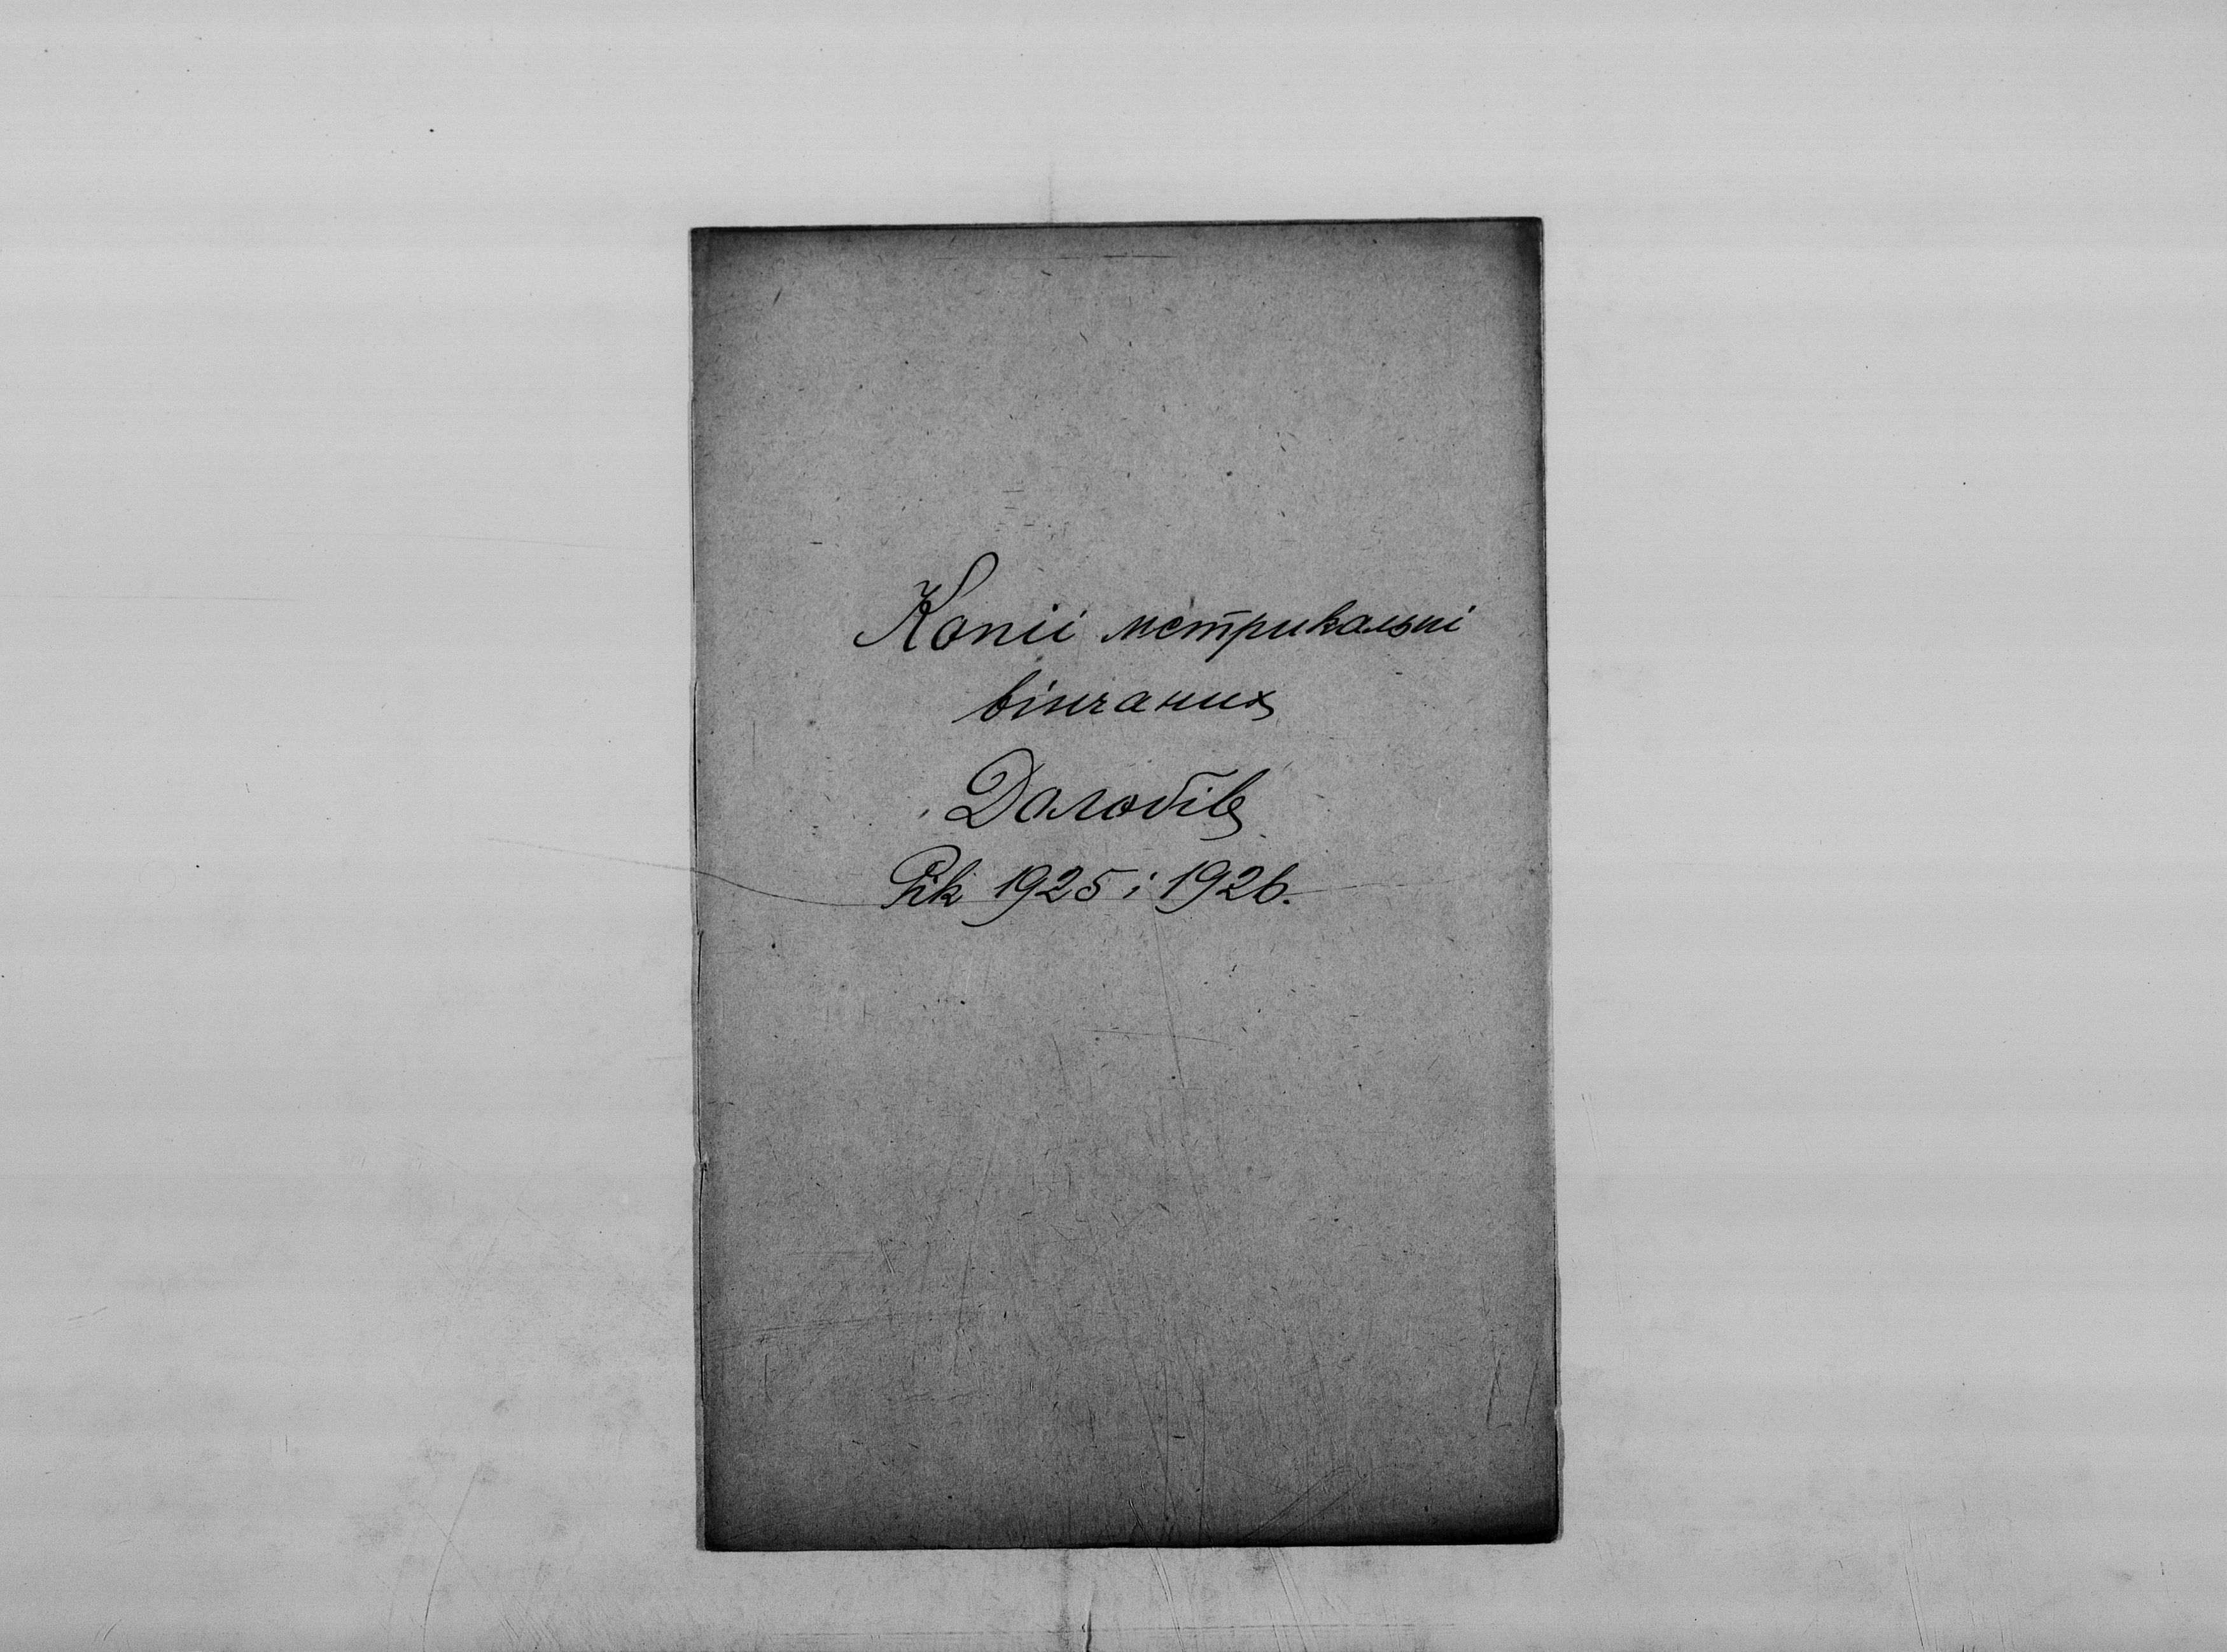 Копії метрикальні
вінчаних
Долобів
Рік 1925 і 1926.